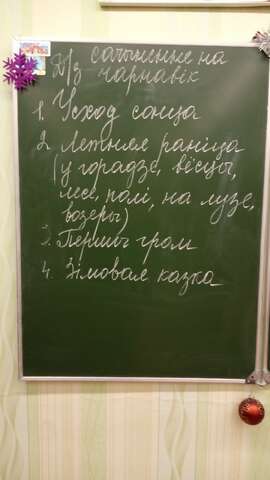 Д/з сачыненне на
чарнавік
1. Усход сонца
2. Летняя раніца
(у горадзе, вёсцы,
лесе, полі, на лузе,
возеры)
3. Першы гром
4. Зімовая казка